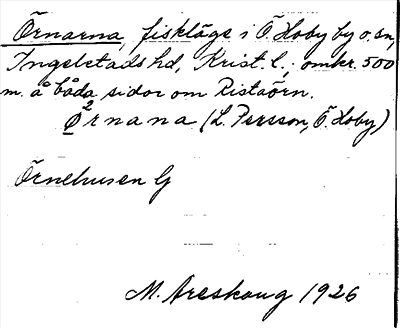 Örnarna, fiskläge i Ö. Hoby by o. sn,
Ingelstads hd, Krist. l.; omkr. 500
m. å båda sidor om Ristaörn.
Ö²rnana (L. Persson, Ö. Hoby)
Örnehusen G
M. Areskoug 1926